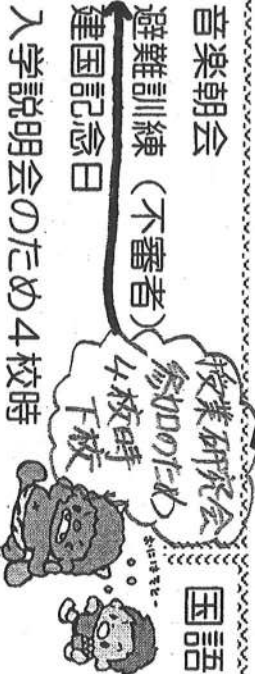 音楽朝会
避難訓練（不審者）
建国記念日
入学説明会のため４校時
授業研究会
参加のため
4校時
下校
おにはそとー
国語